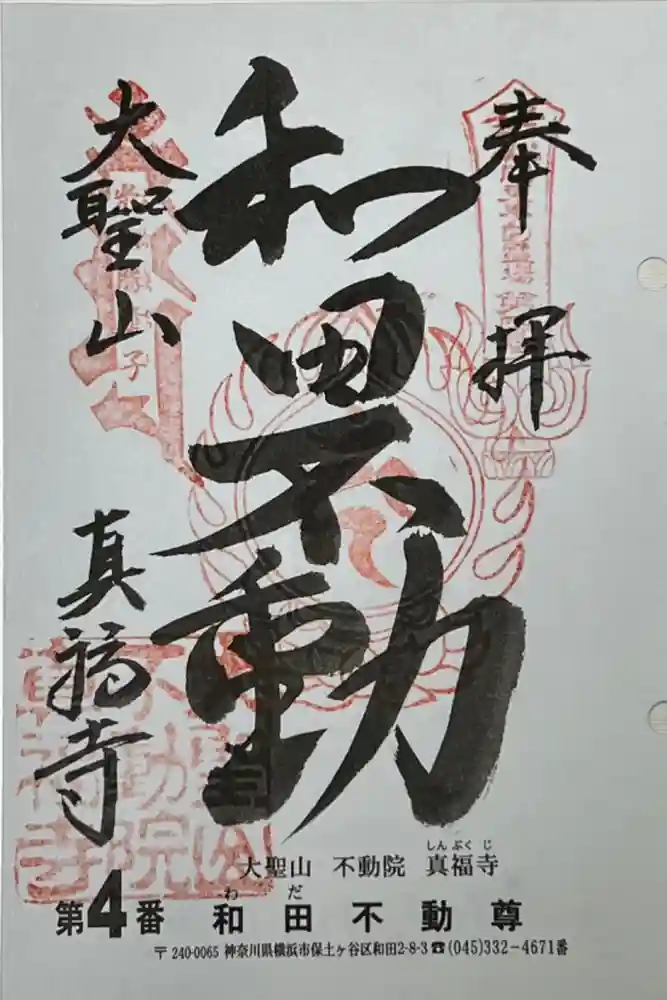 奉拝
和田不動
大聖山
真福寺
大聖山 不動院 真福寺
しんぷくじ
第4番 和田不動尊
わだ
〒240-0065 神奈川県横浜市保土ヶ谷区和田2-8-3☎(045)332-4671番